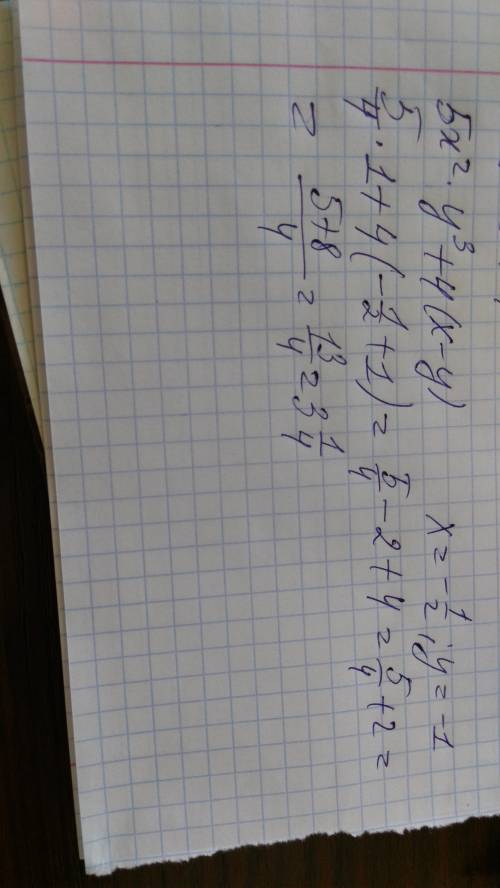 5x²·y³+4(x-y) x=-1/2; y=-1
5/4·1+4(-1/2+1)=5/4-2+4=5/4+2=
=5+8/4=13/4=3 1/4